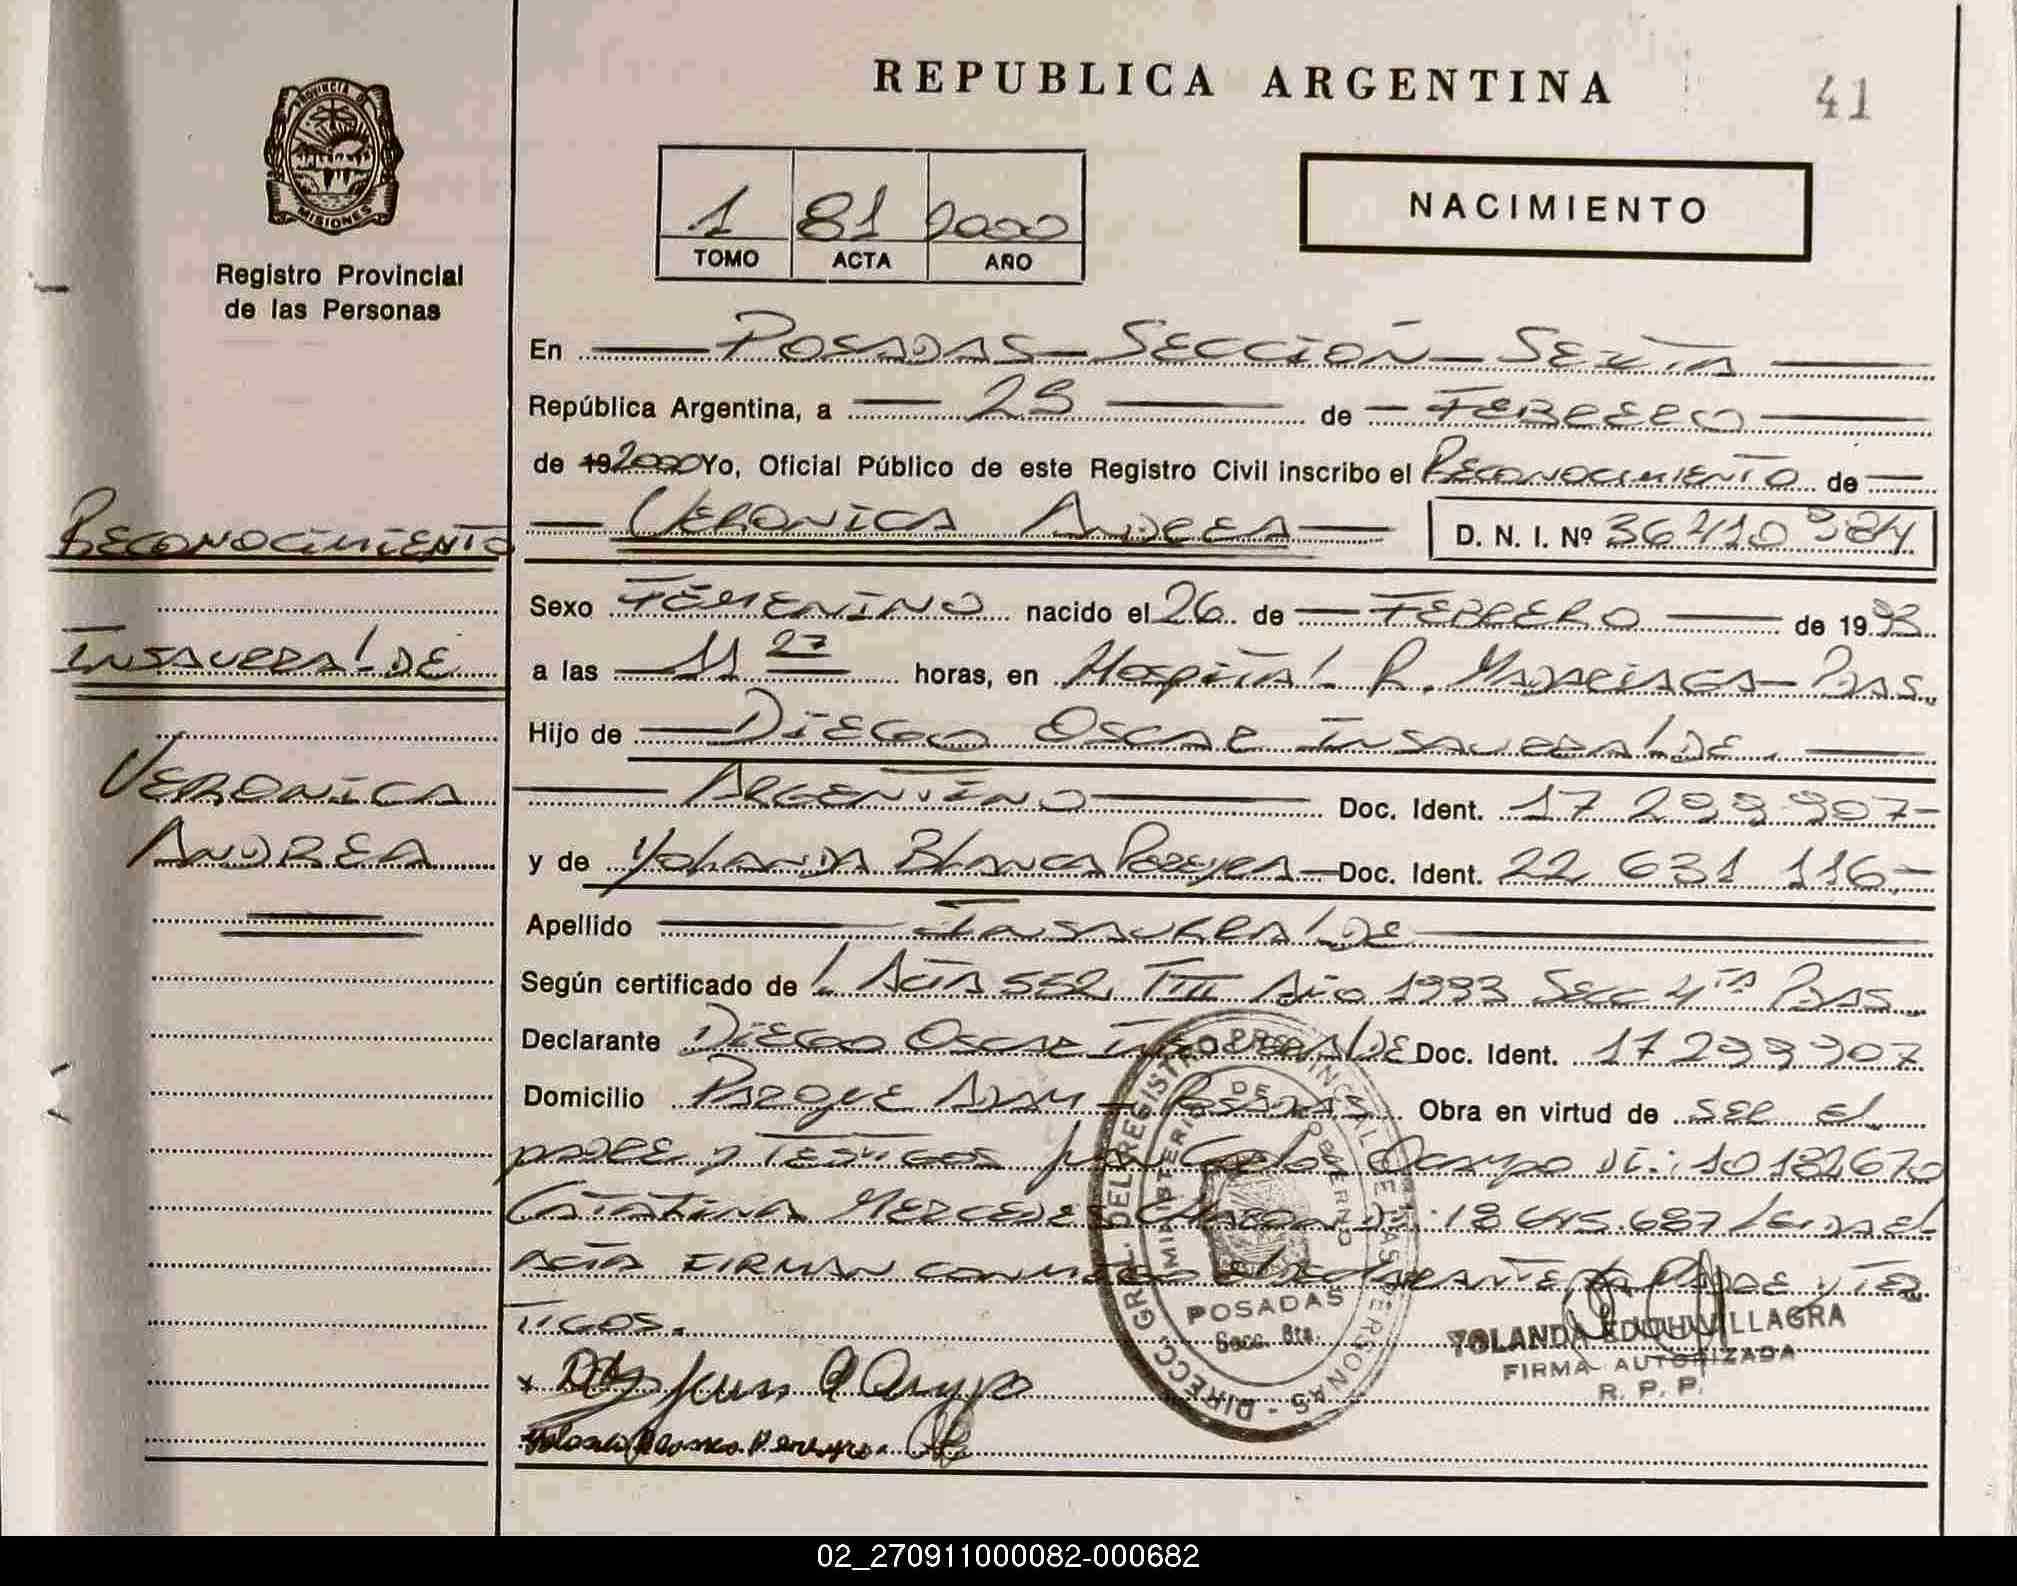 REPUBLICA ARGENTINA
41
PROVINCIA D MISIONES
Registro Provincial
de las Personas
1 81 2000
TOMO ACTA AÑO
NACIMIENTO
En Posadas - Sección - Sexta
República Argentina, a 29 de Febrero
de 19 2000 Yo, Oficial Público de este Registro Civil inscribo el Reconocimiento de
Veronica Andrea D. N. I. Nº 36410984
Sexo Femenino nacido el 26 de Febrero de 1993
a las 11 27 horas, en Hospital R. Madariaga - Pdas.
Hijo de Diego Oscar Insaurralde
Argentino Doc. Ident. 17 299 907-
y de Yolanda Blanca Pereyra - Doc. Ident. 22 631 116.-
Apellido Insaurralde
Según certificado de Acta 552 TIII Año 1993 Secc 4ta Pdas
Declarante Diego Oscar Insaurralde Doc. Ident. 17 299 907
Domicilio Parque Adam - Posadas Obra en virtud de ser el
padre y Testigos Juan Carlos Ocampo Di.: 10182670
Catalina Mercedes Di: 18.645.687 Leida el
Acta Firman conmigo el declarante padre y Tes
Tigos.
Reconocimiento
Insaurralde
Veronica
Andrea
DIRECC. GRAL. DEL REGISTRO PROVINCIAL DE LAS PERSONAS
MINISTERIO DE GOBIERNO
POSADAS
Secc. 6ta.
YOLANDA EDITH VILLAGRA
FIRMA AUTORIZADA
R. P. P.
Juan C Ocampo
Yolanda Blanca Pereyra
02_270911000082-000682